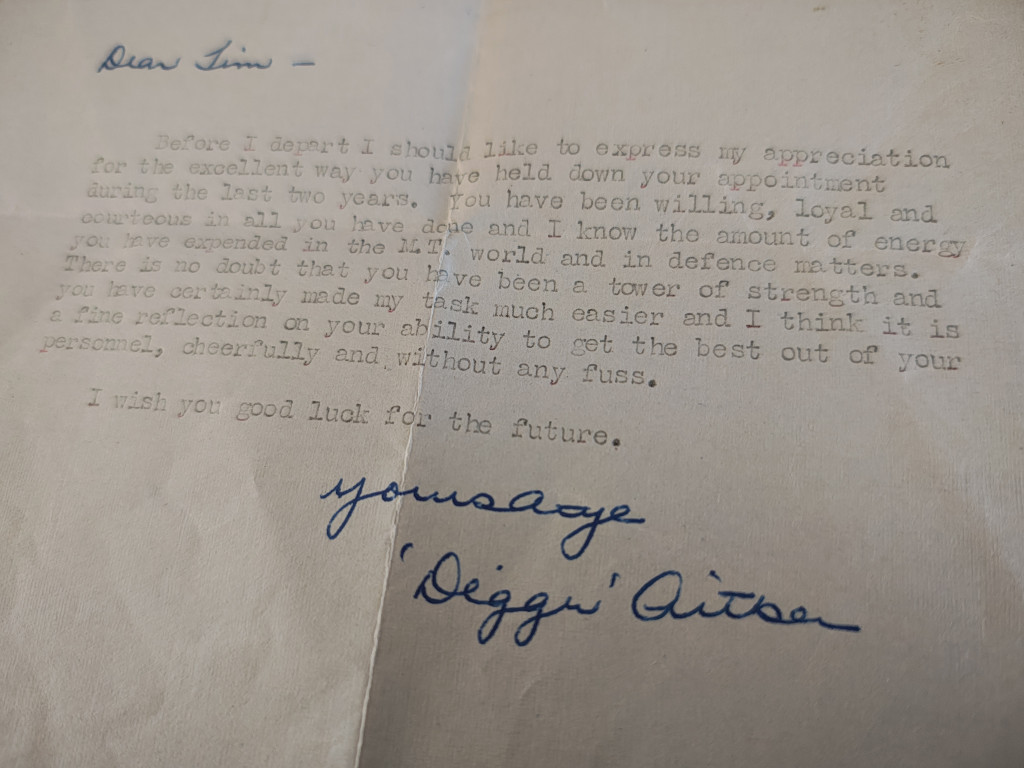 Dear Tim -
Before I depart I should like to express my appreciation
for the excellent way you have held down your appointment
during the last two years. You have been willing, loyal and
courteous in all you have done and I know the amount of energy
you have expended in the M.T. world and in defence matters.
There is no doubt that you have been a tower of strength and
you have certainly made my task much easier and I think it is
a fine reflection on your ability to get the best out of your
personnel, cheerfully and without any fuss.
I wish you good luck for the future.
yours aye
'Digger' Aitken